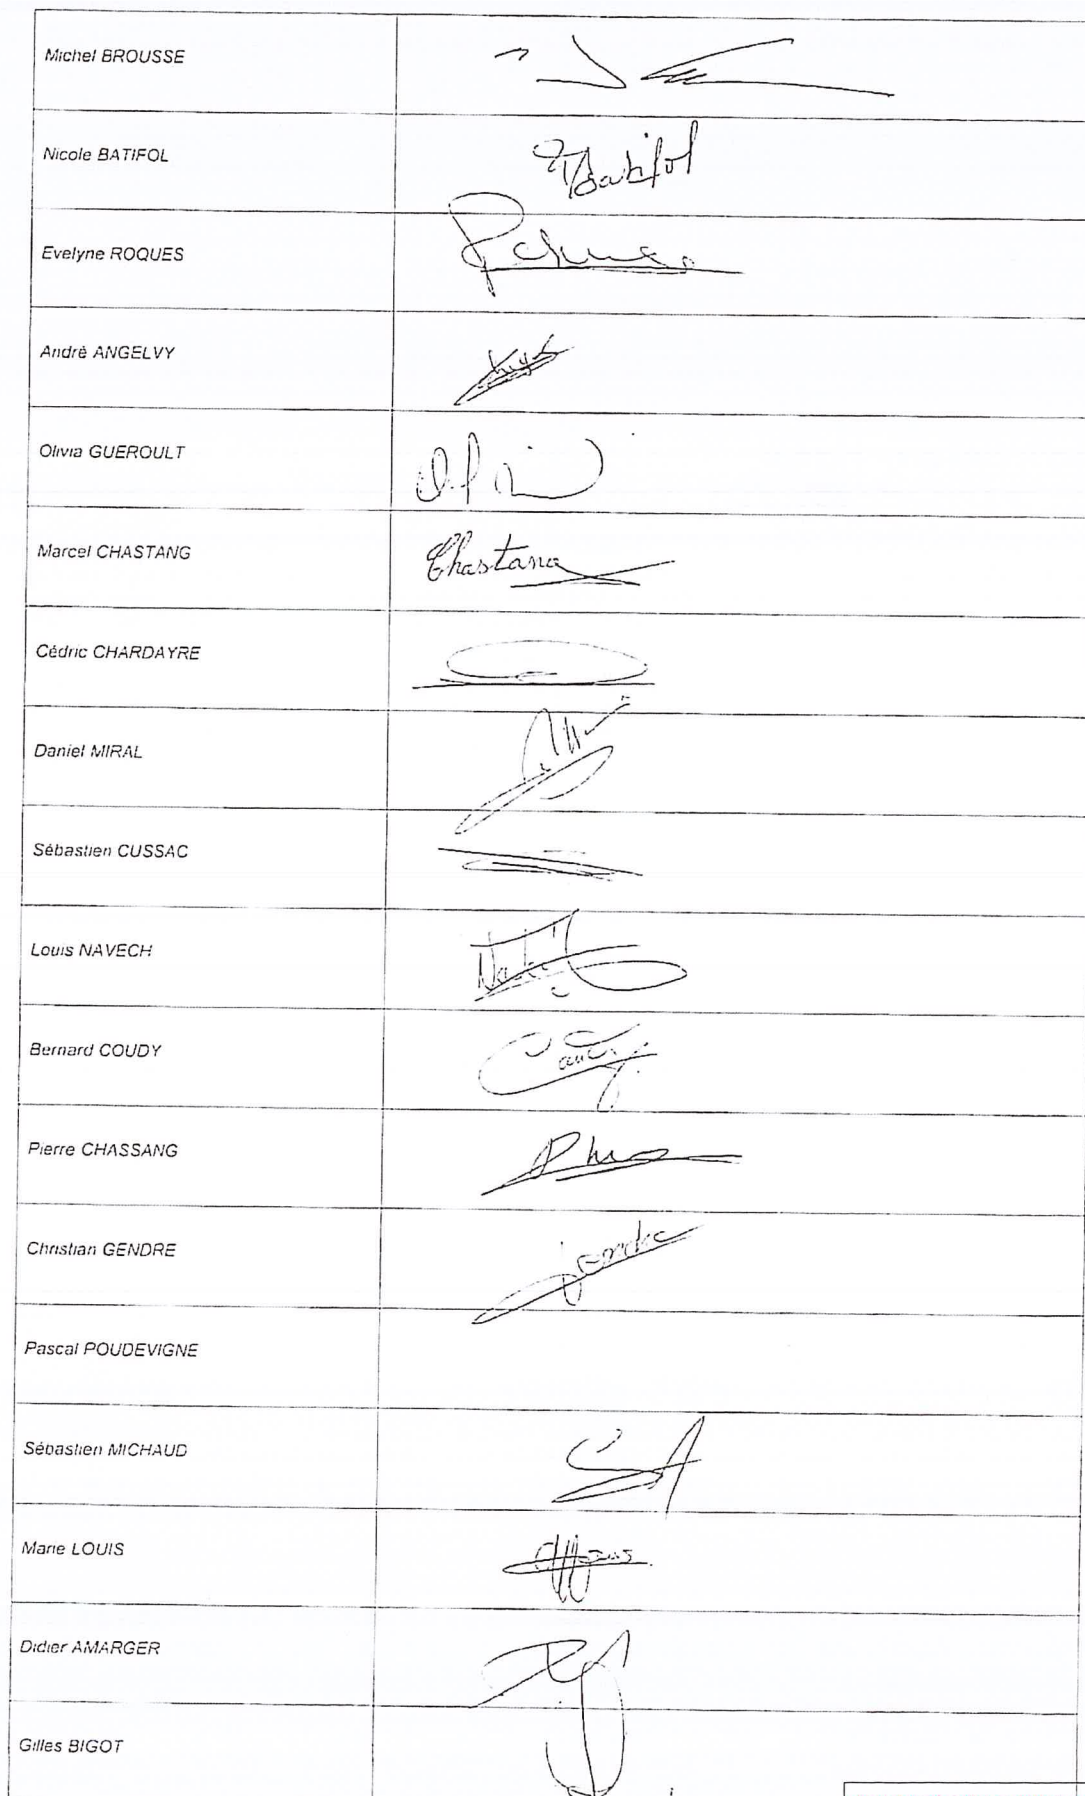 Michel BROUSSE
Nicole BATIFOL
Batifol
Evelyne ROQUES
André ANGELVY
Olivia GUEROULT
Marcel CHASTANG
Chastang
Cédric CHARDAYRE
Daniel MIRAL
Sébastien CUSSAC
Louis NAVECH
Bernard COUDY
Coudy
Pierre CHASSANG
Christian GENDRE
Gendre
Pascal POUDEVIGNE
Sébastien MICHAUD
Marie LOUIS
Didier AMARGER
Gilles BIGOT